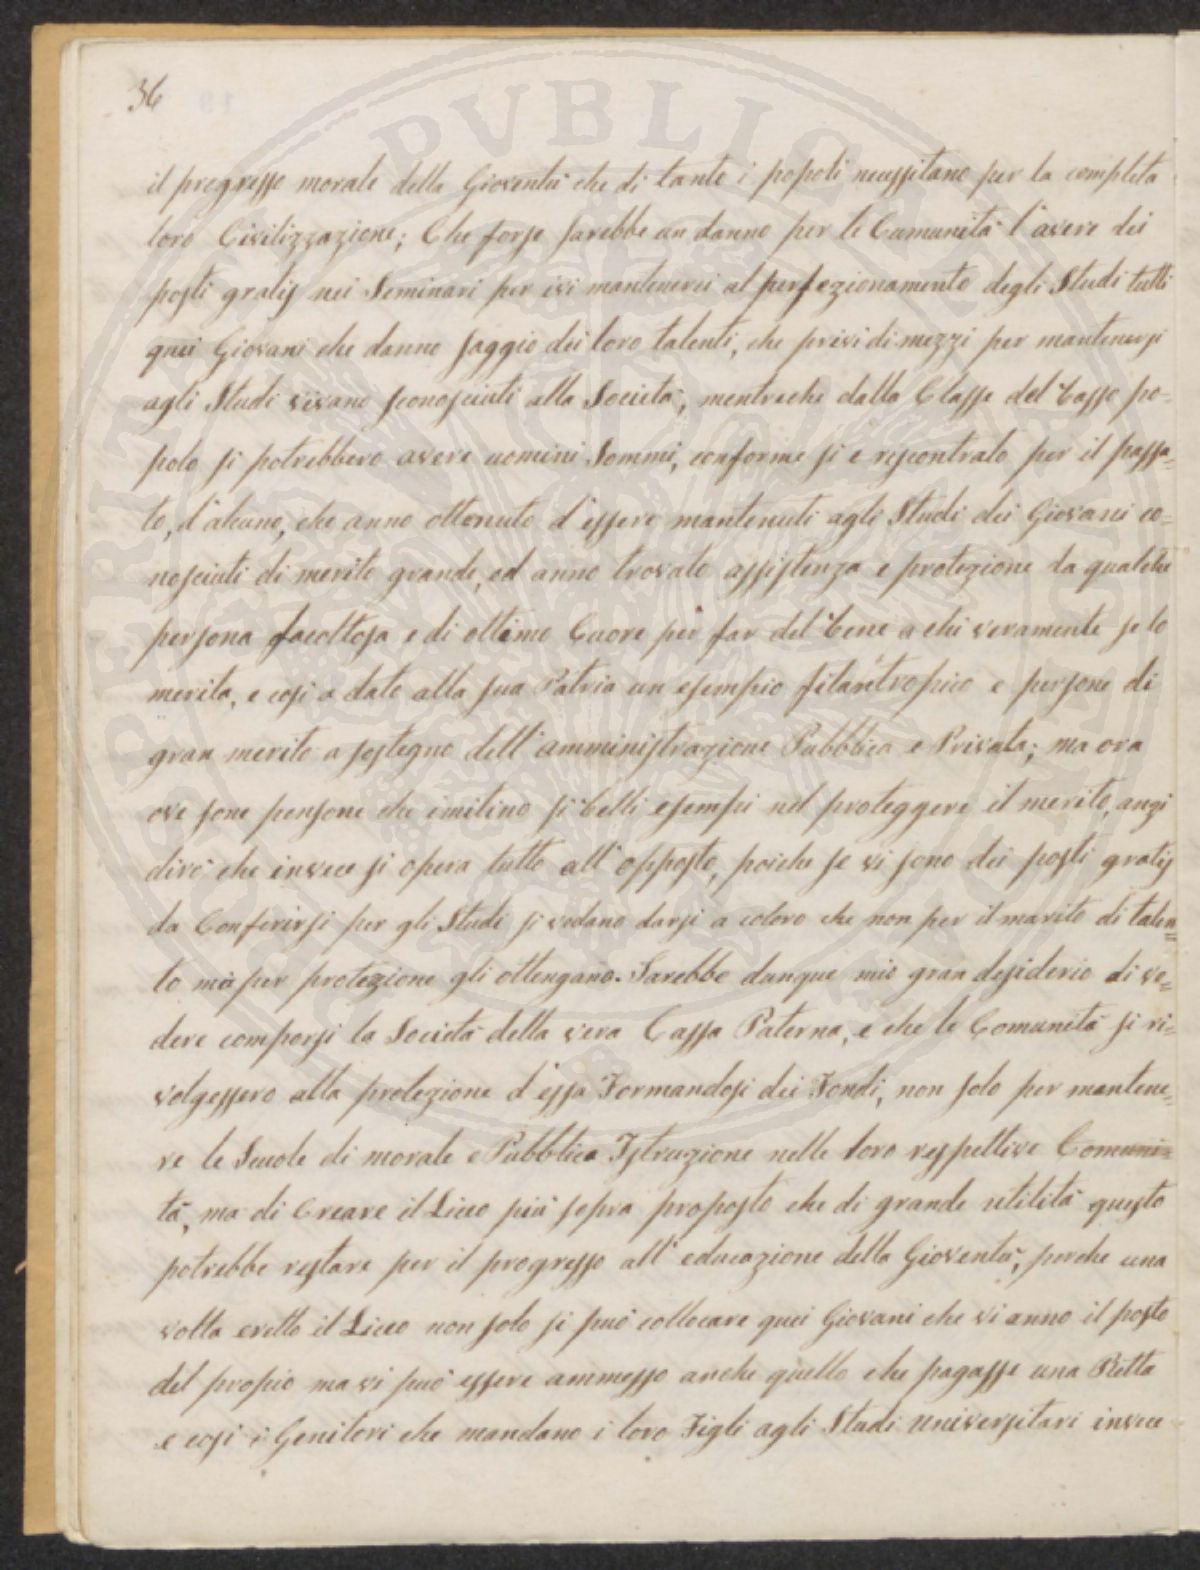 36
il progresso morale della Gioventù che di tanto i popoli necessitano per la completa
loro Civilizzazione; Che forse sarebbe un danno per le Cumunità l'avere dei
posti gratis nei Seminari per ivi mantenervi al perfezionamento degli Studi tutti
quei Giovani che danno saggio dei loro talenti, che privi di mezzi per mantenersi
agli Studi vivano sconosciuti alla Società, mentreche dalla Classe del basso po=
polo si potrebbero avere uomini Sommi, conforme si è riscontrato per il passa=
to, d'alcuno, che anno ottenuto d'essere mantenuti agli Studi dei Giovani co=
nosciuti di merito grande, ed anno trovato assistenza e protezione da qualche
persona facoltosa e di ottimo Cuore per far del bene a chi veramente se lo
merita, e così a dato alla sua Patria un esempio filantropico e persone di
gran merito a sostegno dell'amministrazione Pubblica e Privata; ma ora
ove sono persone che imitino sì belli esempi nel proteggere il merito, anzi
dirò che invece si opera tutto all'opposto, poiche se vi sono dei posti gratis
da Conferirsi per gli Studi si vedano darsi a coloro che non per il marito di talen=
to mà per protezione gli ottengano. Sarebbe dunque mio gran desiderio di ve=
dere comporsi la Società della vera Cassa Paterna, e che le Comunità si ri=
volgessero alla protezione d'essa Formandosi dei Fondi, non solo per mantene=
re le Scuole di morale e Pubblica Istruzione nelle loro respettive Comuni=
tà, ma di Creare il Liceo più sopra proposto che di grande utilità questo
potrebbe restare per il progresso all'educazione della Gioventù, perche una
volta eretto il Liceo non solo si può collocare quei Giovani che vi anno il posto
del propio ma vi può essere ammesso anche quello che pagasse una Retta
e così i Genitori che mandano i loro Figli agli Studi Universitari invece